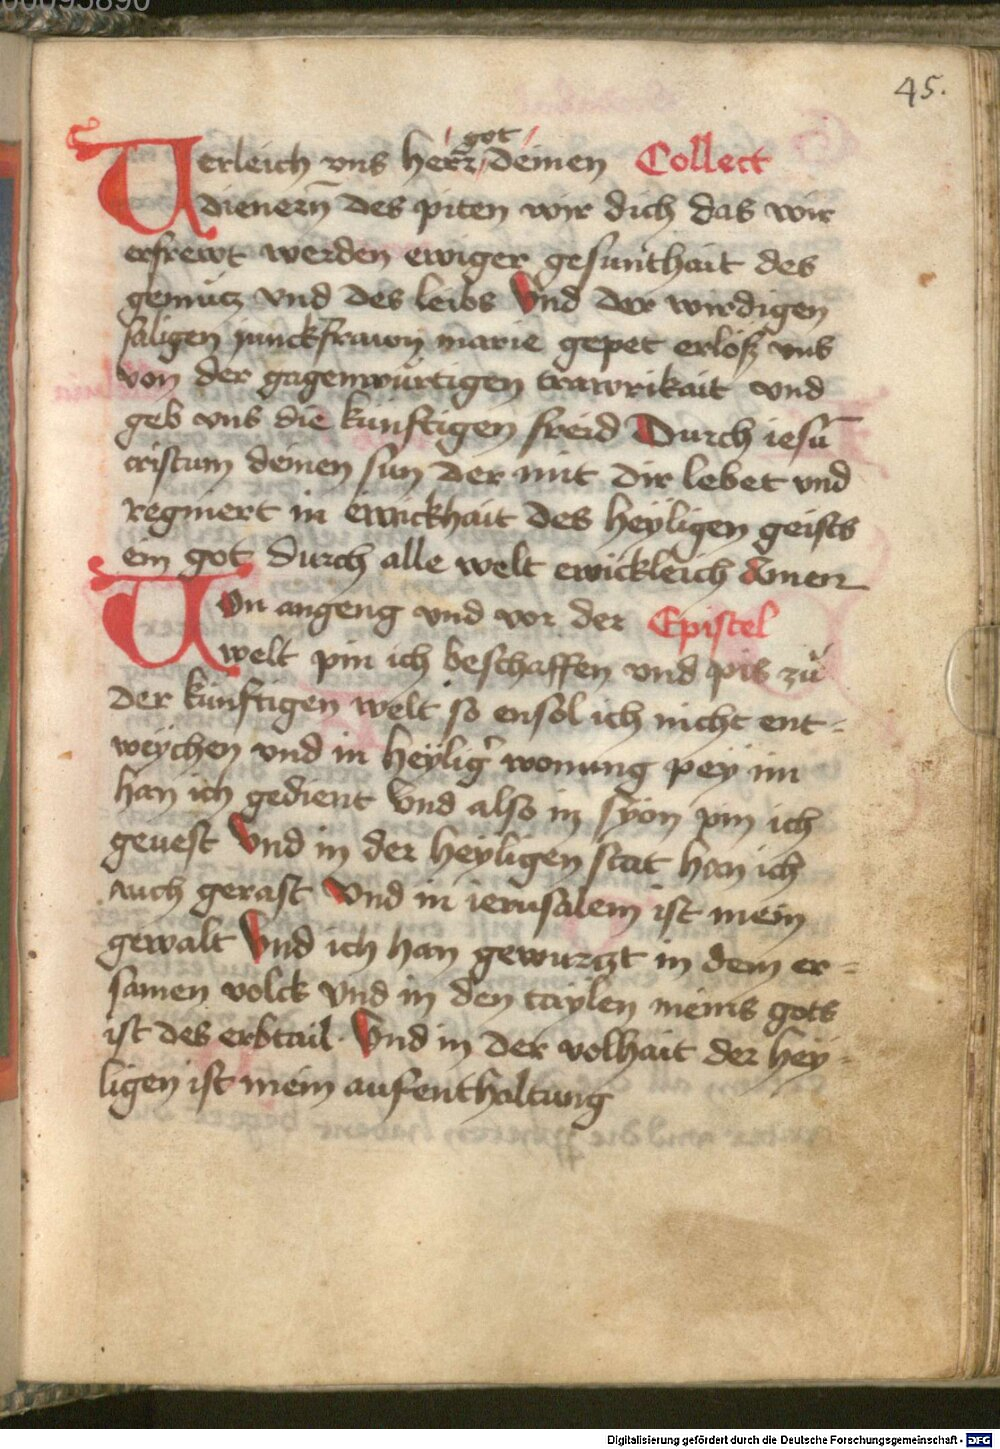 00095890
45.
Verleich vns herr got deinen Collect
dienern̄ des piten wir dich das wir
erfrewt werden ewiger gesunthait des
gemütz vnd des leibs Vnd der wirdigen
saligen junckfrawn marie gepet erlös vns
von der gagenwürtigen trawrikait vnd
geb vns die künftigen freid Durch iesū
cristum deinen sun der mit dir lebet vnd
regniert in ewickhait des heyligen geists
ein got durch alle welt ewickleich Amen
Von angeng vnd vor der Epistel
welt pin ich beschaffen vnd pis zů
der künftigen welt so ensol ich nicht ent-
weychen vnd in heylig̉ wonung pey im
han ich gedient Vnd also in syon pin ich
geuest Vnd in der heyligen stat han ich
auch gerast Vnd in ierusalem ist mein
gewalt Vnd ich han gewurczt in dem er-
samen volck Vnd in den taylen meins gots
ist des erbtail. Vnd in der volhait der hey-
ligen ist mein aufenthaltung
Digitalisierung gefördert durch die Deutsche Forschungsgemeinschaft - DFG